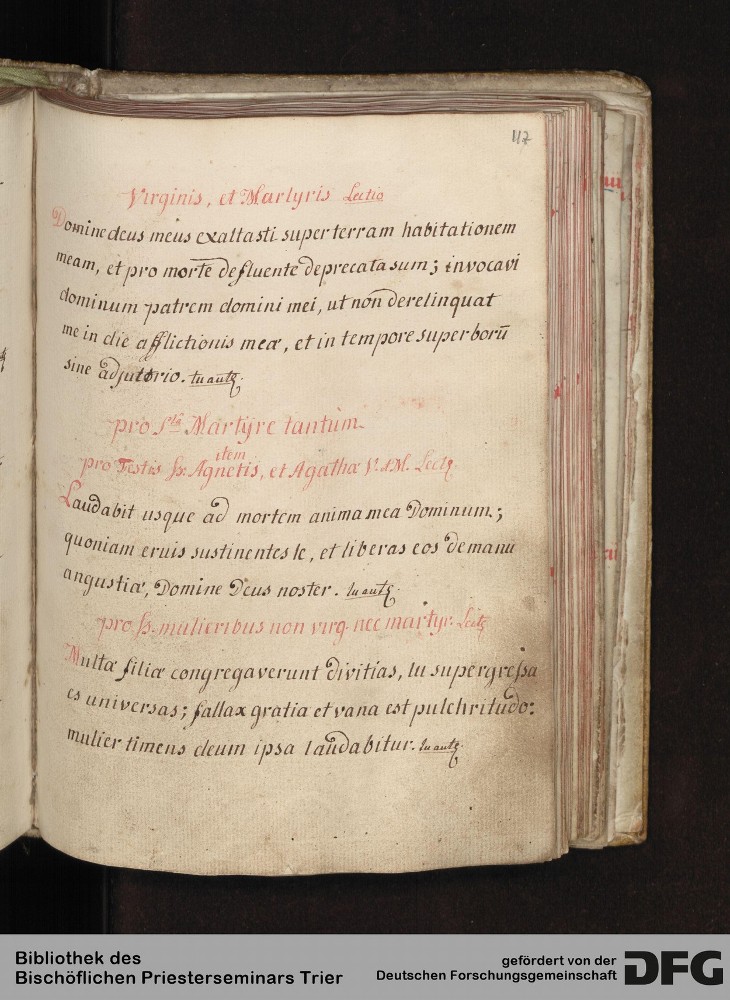 117
Virginis, et Martyris Lectio
Domine deus meus exaltasti super terram habitationem
meam, et pro morte defluente deprecata sum; invocavi
dominum patrem domini mei, ut non derelinquat
me in die afflictionis meæ, et in tempore superborū
sine adjutorio. tu autē.
pro Stâ Martyre tantùm
item
pro Festis SS. Agnetis, et Agathæ V. &M. Lect.
Laudabit usque ad mortem anima mea Dominum;
quoniam eruis sustinentes te, et liberas eos de manu
angustiæ, Domine Deus noster. tu autē.
pro SS. mulieribus non virg. nec martyr. Lect.
Multæ filiæ congregaverunt divitias, tu supergressa
es universas; fallax gratia et vana est pulchritudo:
mulier timens deum ipsa laudabitur. tu autē.
Bibliothek des
Bischöflichen Priesterseminars Trier
gefördert von der
Deutschen Forschungsgemeinschaft
DFG